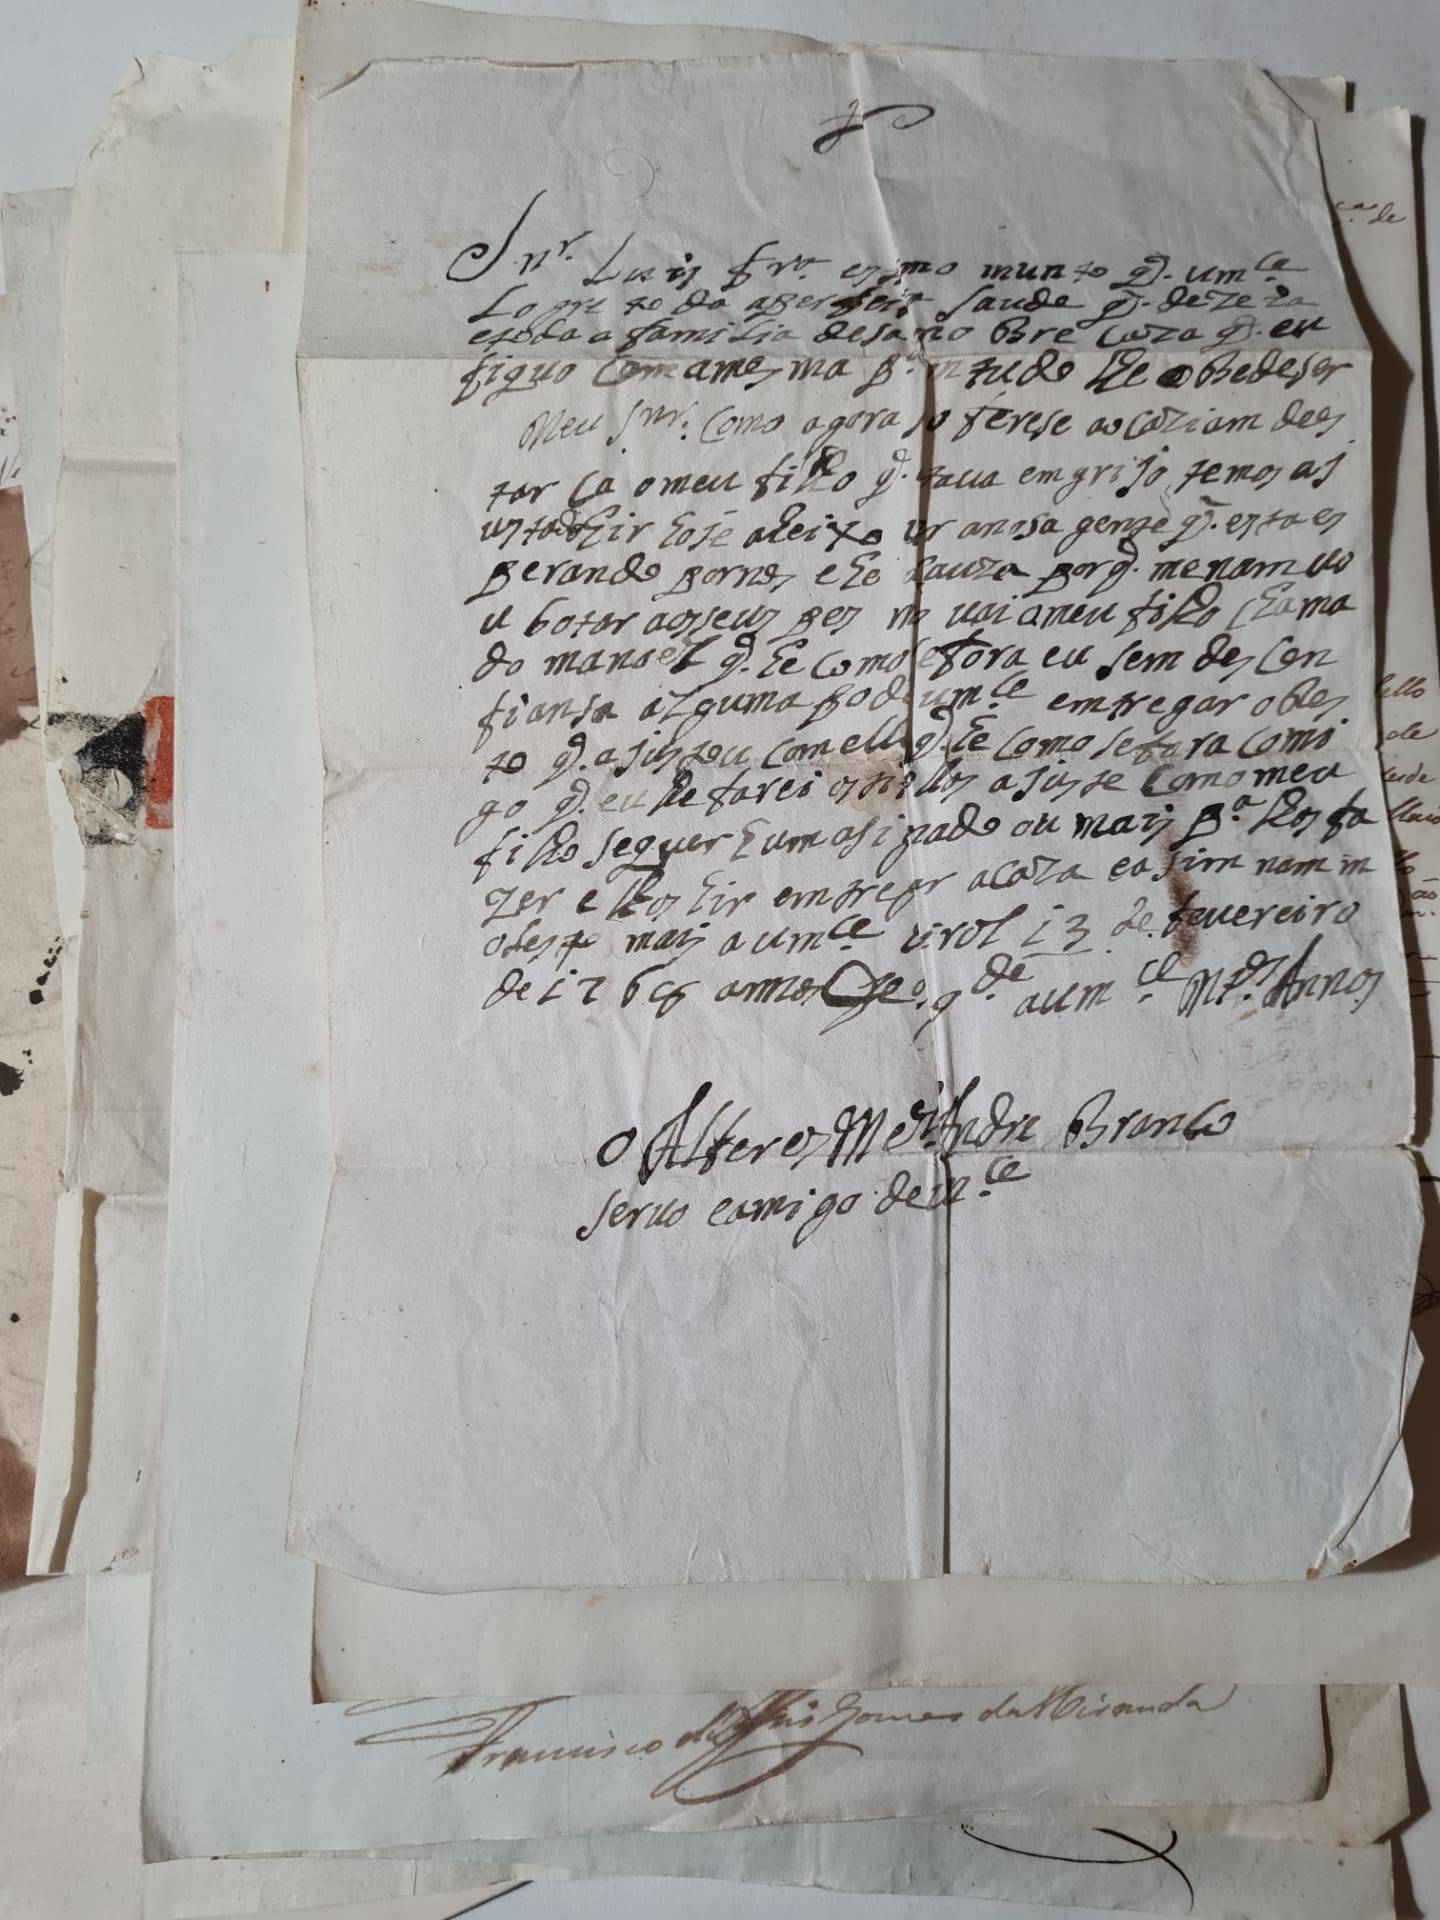 Snr. Luis frª. esimo munto q̃. umce
Logre to da a perfeita saude q̃. dezeza
e toda a familia de sa no Bre Caza q̃. eu
fiquo Com a mes ma pª. in tudo lhe oBedeser
Meu Snr. Como agora so ferese ao caziam dees
tar Ca o meu filho q̃. tava em grijo temos aj
ustado hir hoje aleixo ver a nosa gente q̃. esta es
perando por nos e he Cauza por q̃. me nam vo
u botar aos seus pes no vai o meu filho Chama
do manoel q̃. he como se fora eu sem des Con
fiansa alguma pode umce. emtregar o Res
to q̃. a justou Com elle q̃. he Como se fora Comi
go q̃. eu lhe farei os a juste Como meu
filho se quer hum asinado ou mais pª. lhos fa
zer e lhos hir emtregar a caza e asim nam m
olesto mais a umce. virol 13 de. fevereiro
de 1766 annos Deº. gde. a umce. Mtos. Annos
O Alferes Mel. Andre Branco
servo e amigo de vmce.
Francisco de Gomes da Miranda
ca. de
de